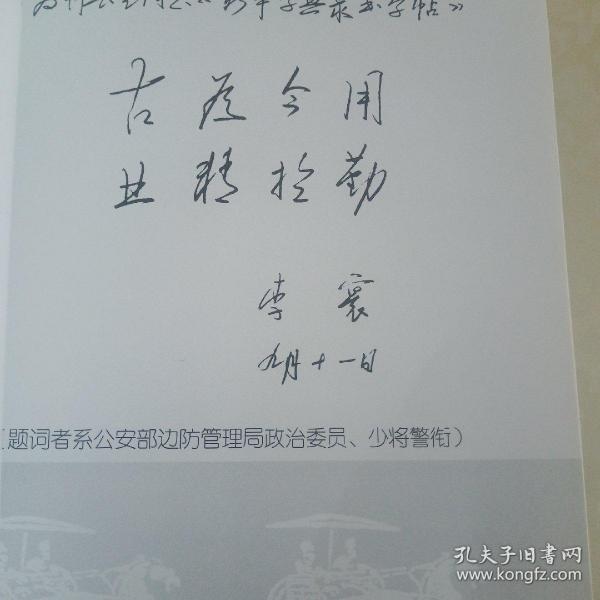 字帖》
古为今用
业精於勤
李寰
九月十一日
（题词者系公安部边防管理局政治委员、少将警衔）
孔夫子旧书网
www.kongfz.com